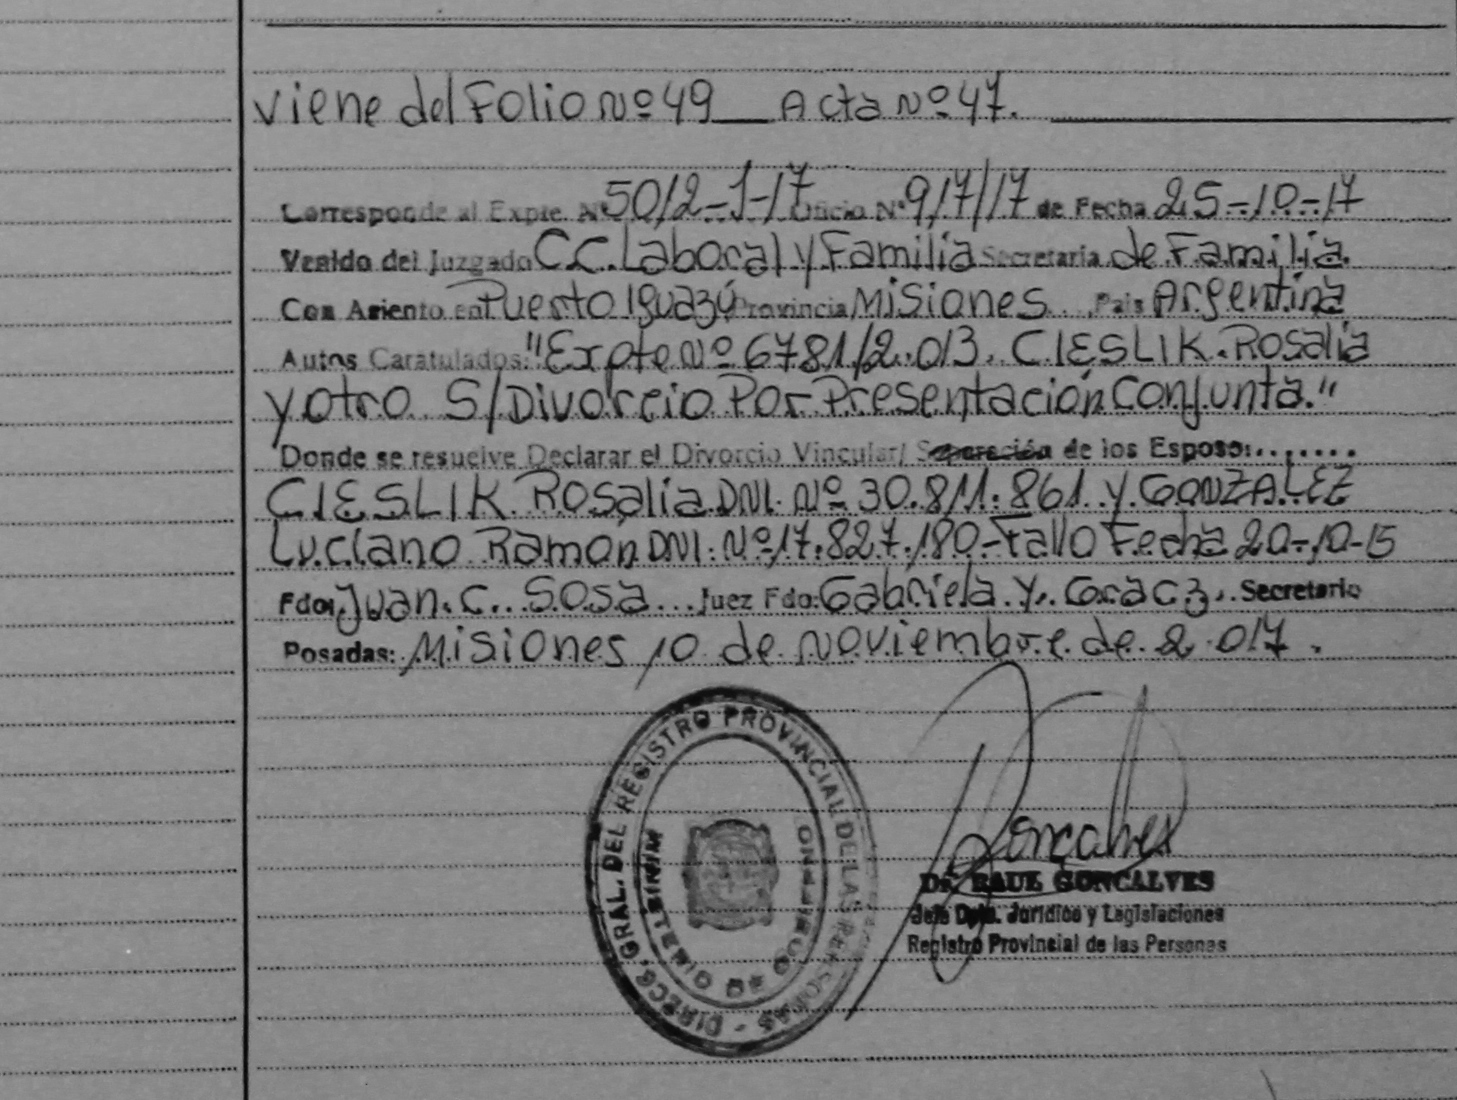 Viene del Folio Nº 49 Acta Nº 47.
Corresponde al Expte. Nº 5012-J-17 Oficio Nº 917/17 de Fecha 25-10-17
Venido del Juzgado C.C. Laboral y Familia Secretaria de Familia.
Con Asiento en Puerto Iguazú Provincia Misiones... Pais Argentina
Autos Caratulados: "Expte Nº 6781/2.013. CIESLIK. Rosalia
y otro S/Divorcio Por Presentación Conjunta."
Donde se resuelve Declarar el Divorcio Vincular/ Separación de los Esposos:.......
CIESLIK Rosalia DNI. Nº 30.811.861 y GONZALEZ
Luciano Ramón DNI. Nº 17.827.180-Fallo Fecha 20-10-15
Fdo: Juan. C. Sosa... Juez Fdo: Gabriela Y. Secretario
Posadas: Misiones 10 de Noviembre de 2.017.
DIRECC. GRAL. DEL REGISTRO PROVINCIAL DE LAS PERSONAS -
MINISTERIO DE GOBIERNO
Goncalves
Dr. RAUL GONCALVES
Jefe Dpto. Juridico y Legislaciones
Registro Provincial de las Personas